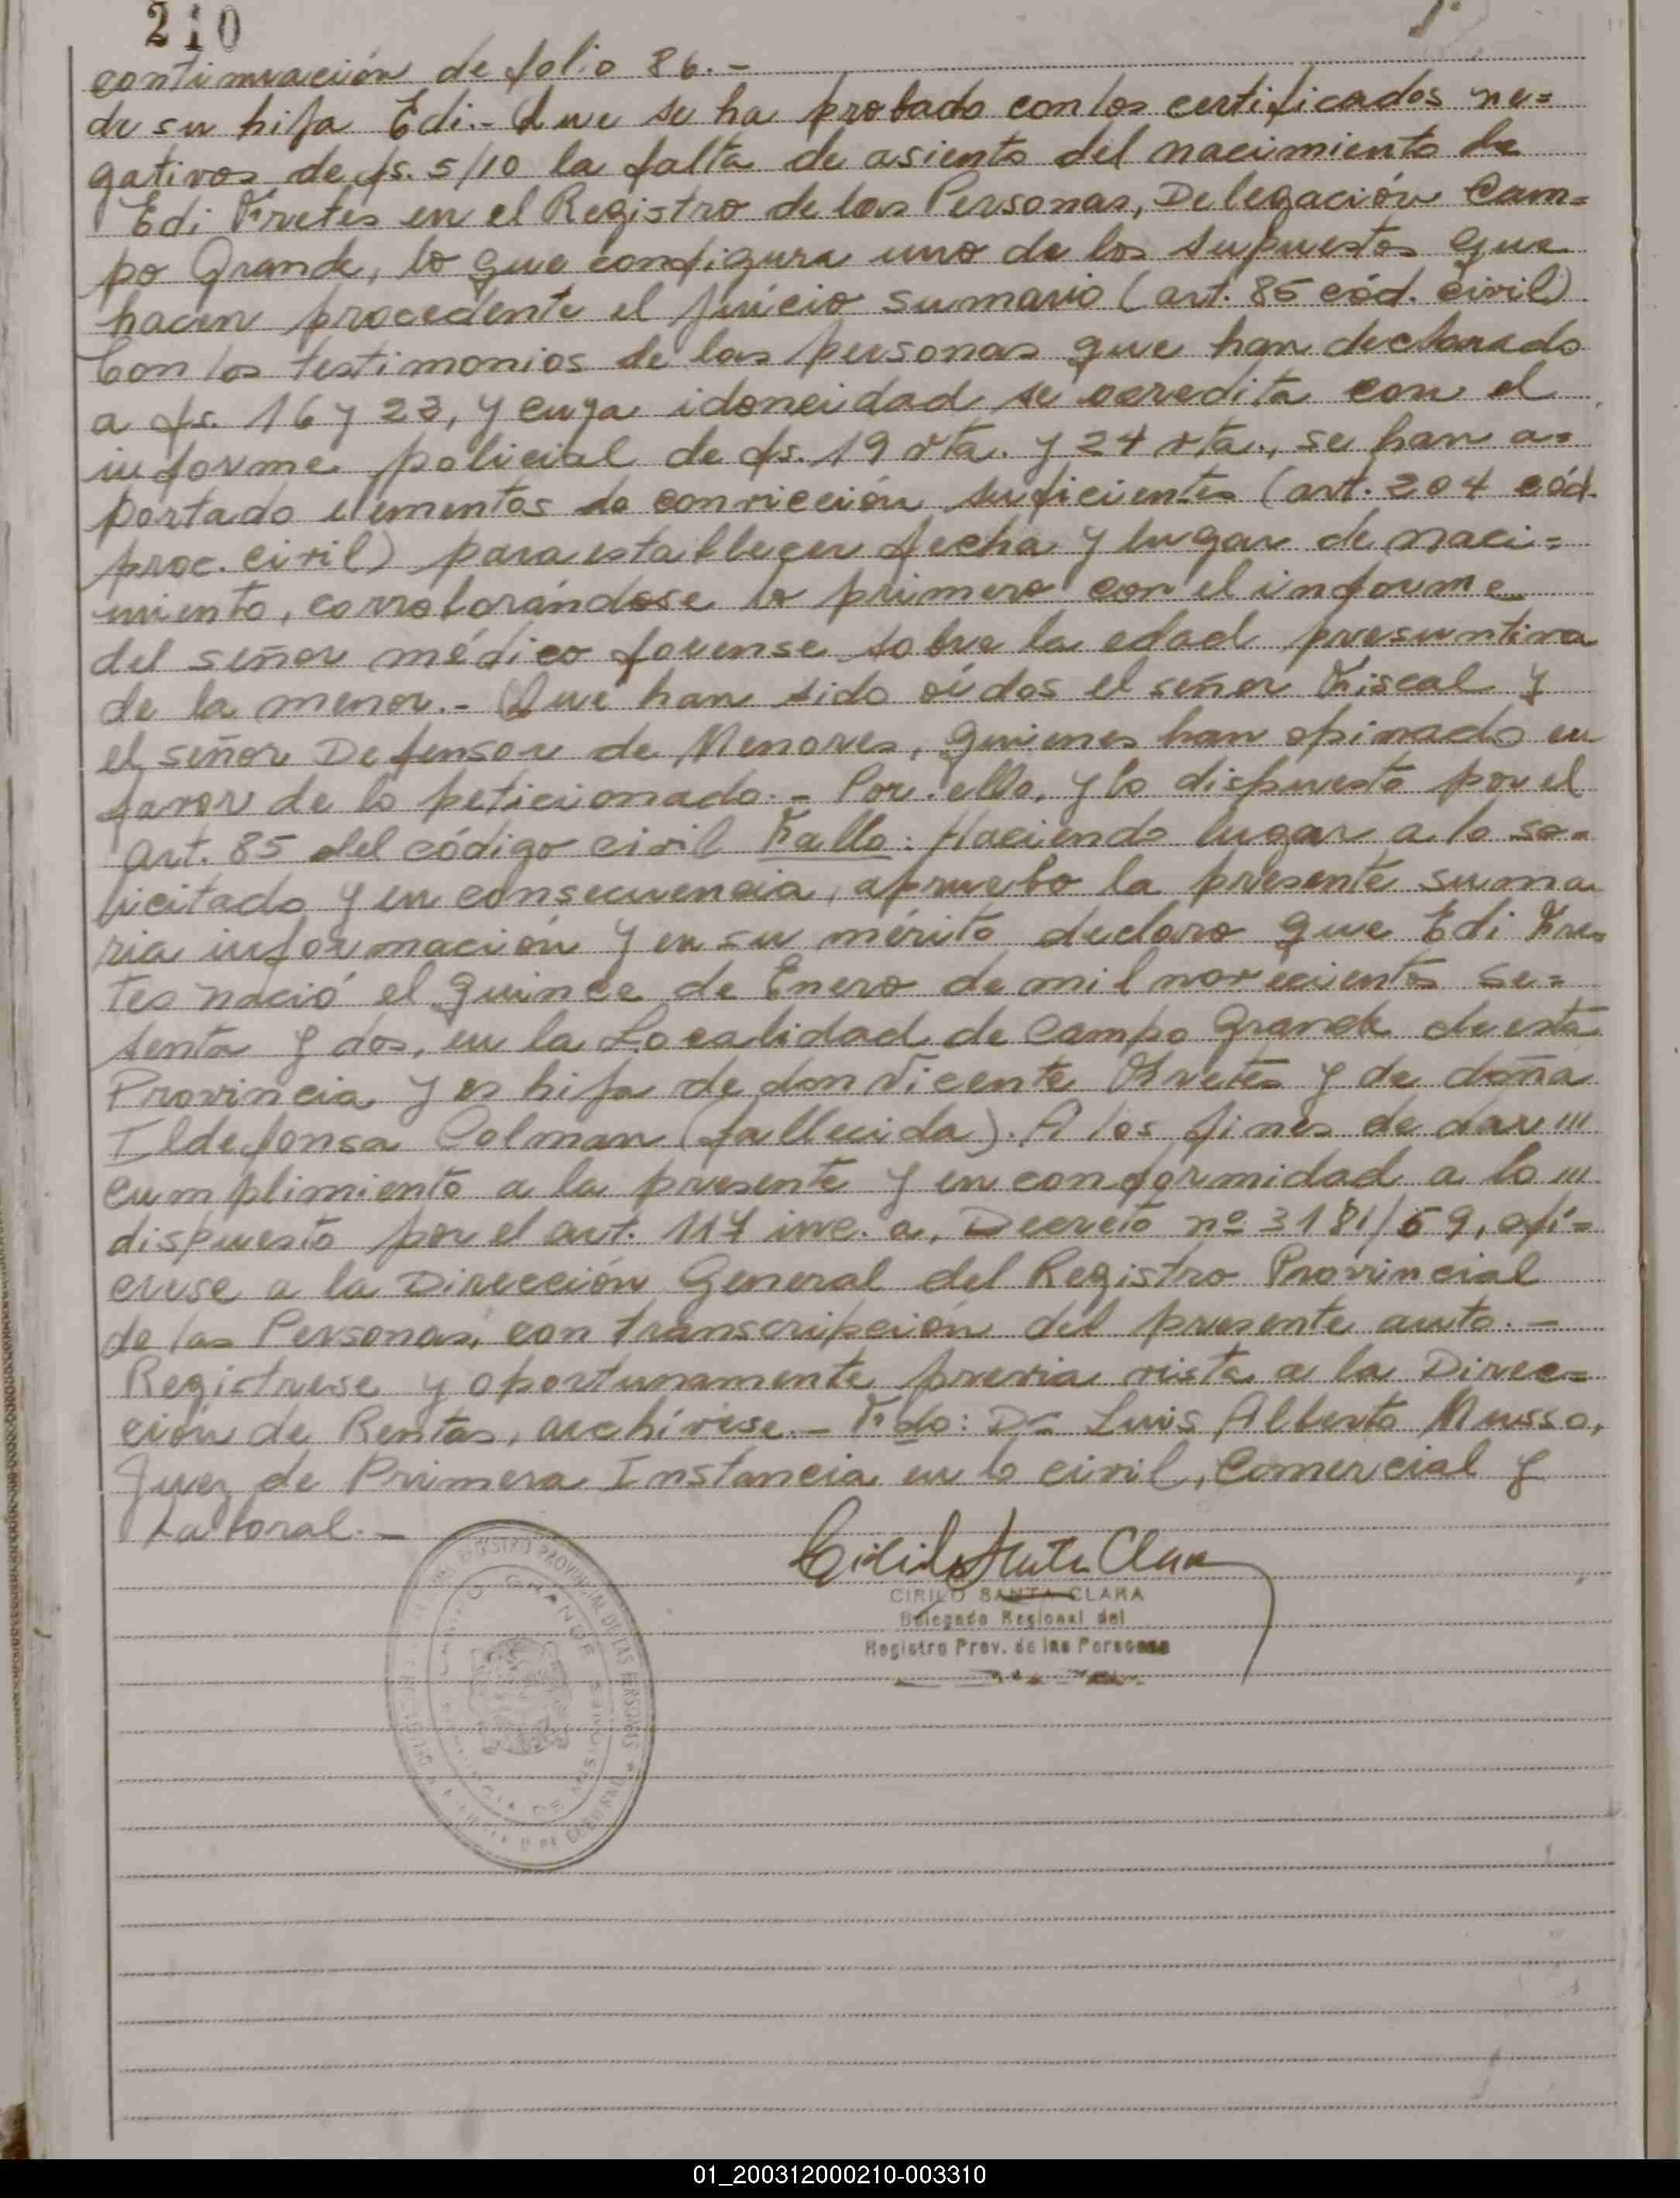 210
continuación de folio 86.-
de su hija Edi.- Que se ha probado con los certificados ne=
gativos de fs. 5/10 la falta de asiento del nacimiento de
Edi Fretes en el Registro de las Personas, Delegación Cam=
po Grande, lo que configura uno de los supuestos que
hacen procedente el juicio sumario (art. 85 cód. Civil)
Con los testimonios de las personas que han declarado
a fs. 16 y 23, y cuya idoneidad se acredita con el
informe policial de fs. 19 vta. y 24 vta., se han a=
portado elementos de convicción suficientes (art. 204 cód.
proc. civil) para establecer fecha y lugar de naci=
miento, corroborándose lo primero con el informe
del señor médico forense sobre la edad presuntiva
de la menor.- Que han sido oídos el señor Fiscal y
el señor Defensor de Menores, quienes han opinado en
favor de lo peticionado.- Por ello, y lo dispuesto por el
art. 85 del código civil Fallo: Haciendo lugar a lo so=
licitado y en consecuencia, apruebo la presente suma
ria información y en su mérito declaro que Edi Fre=
tes nació el quince de Enero de mil novecientos se=
senta y dos, en la Localidad de Campo Grande de esta
Provincia y es hija de don Vicente Fretes y de doña
Ildefonsa Colman (fallecida). A los fines de dar ///
cumplimiento a la presente y en conformidad a lo ///
dispuesto por el art. 117 inc. a, Decreto nº 3181/59, ofí=
cese a la Dirección General del Registro Provincial
de las Personas, con transcripción del presente auto.-
Regístrese y oportunamente previa vista a la Direc=
ción de Rentas, archívese.- Fdo: Dr Luis Alberto Musso,
Juez de Primera Instancia en lo civil, Comercial y
Laboral.-
Cirilo Santa Clara
CIRILO SANTA CLARA
Delegado Regional del
Registro Prov. de las Personas
REGISTRO PROVINCIAL DE LAS PERSONAS
GRANDE
01_200312000210-003310